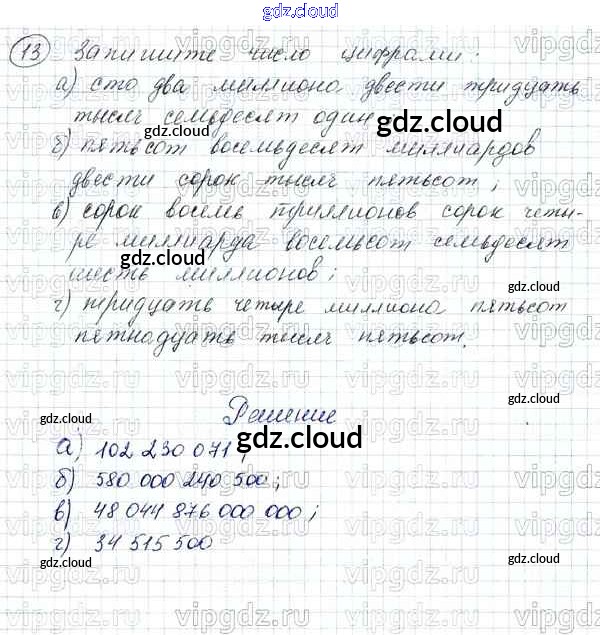 gdz.cloud
13 Запишите число цифрами:
а) сто два миллиона двести тридцать
тысяч семьдесят один
gdz.cloud gdz.cloud
б) пятьсот восемьдесят миллиардов
двести сорок тысяч пятьсот;
в) сорок восемь триллионов сорок четы-
ре миллиарда восемьсот семьдесят
gdz.cloud
шесть миллионов;
gdz.cloud
г) тридцать четыре миллиона пятьсот
пятнадцать тысяч пятьсот.
vipgdz.ru vipgdz.ru vipgdz.ru
Решение
gdz.cloud gdz.cloud
а) 102 230 071 ;
gdz.cloud
б) 580 000 240 500;
в) 48 044 876 000 000;
г) 34 515 500
gdz.cloud gdz.cloud
vipgdz.ru vipgdz.ru vipgdz.ru
gdz.cloud